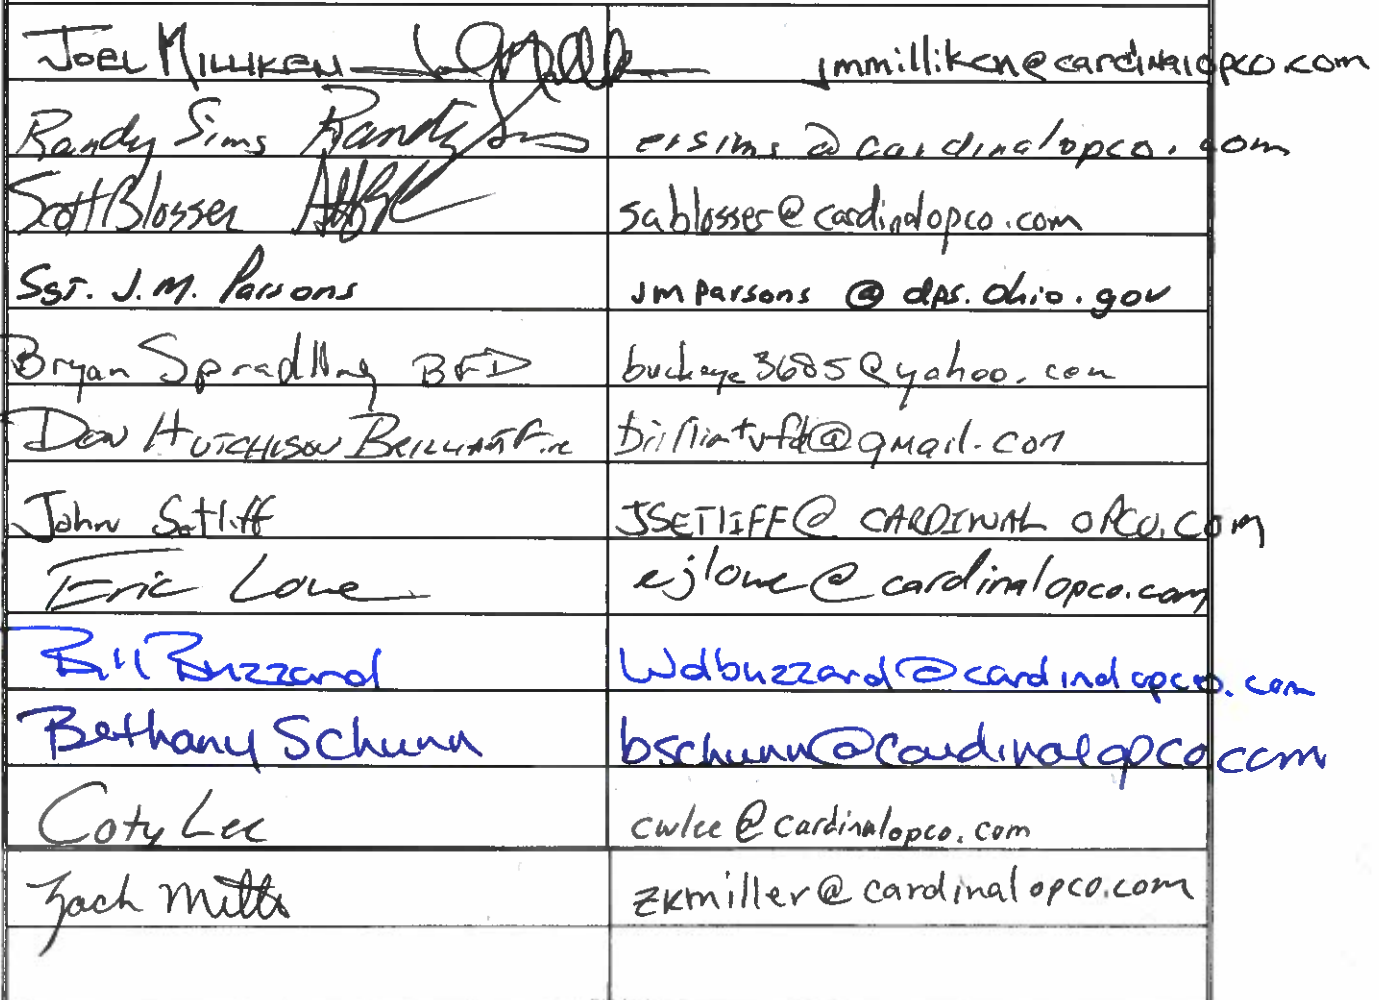 Joel Milliken jmmilliken@cardinalopco.com
Randy Sims Randy Sims ersims@cardinalopco.com
Scott Blosser sablosser@cardinalopco.com
Sgt. J.M. Parsons jmparsons @ dps.ohio.gov
Bryan Spradling BFD buckeye3685@yahoo.com
Don Hutchison Brilliant Fire brilliantvfd@gmail.com
John Setliff JSETLIFF@ CARDINAL OPCO.COM
Eric Lowe ejlowe@cardinalopco.com
Bill Buzzard Wdbuzzard@cardinalopco.com
Bethany Schunn bschunn@cardinalopco.com
Coty Lee cwlee@cardinalopco.com
Zach zkmiller@cardinalopco.com